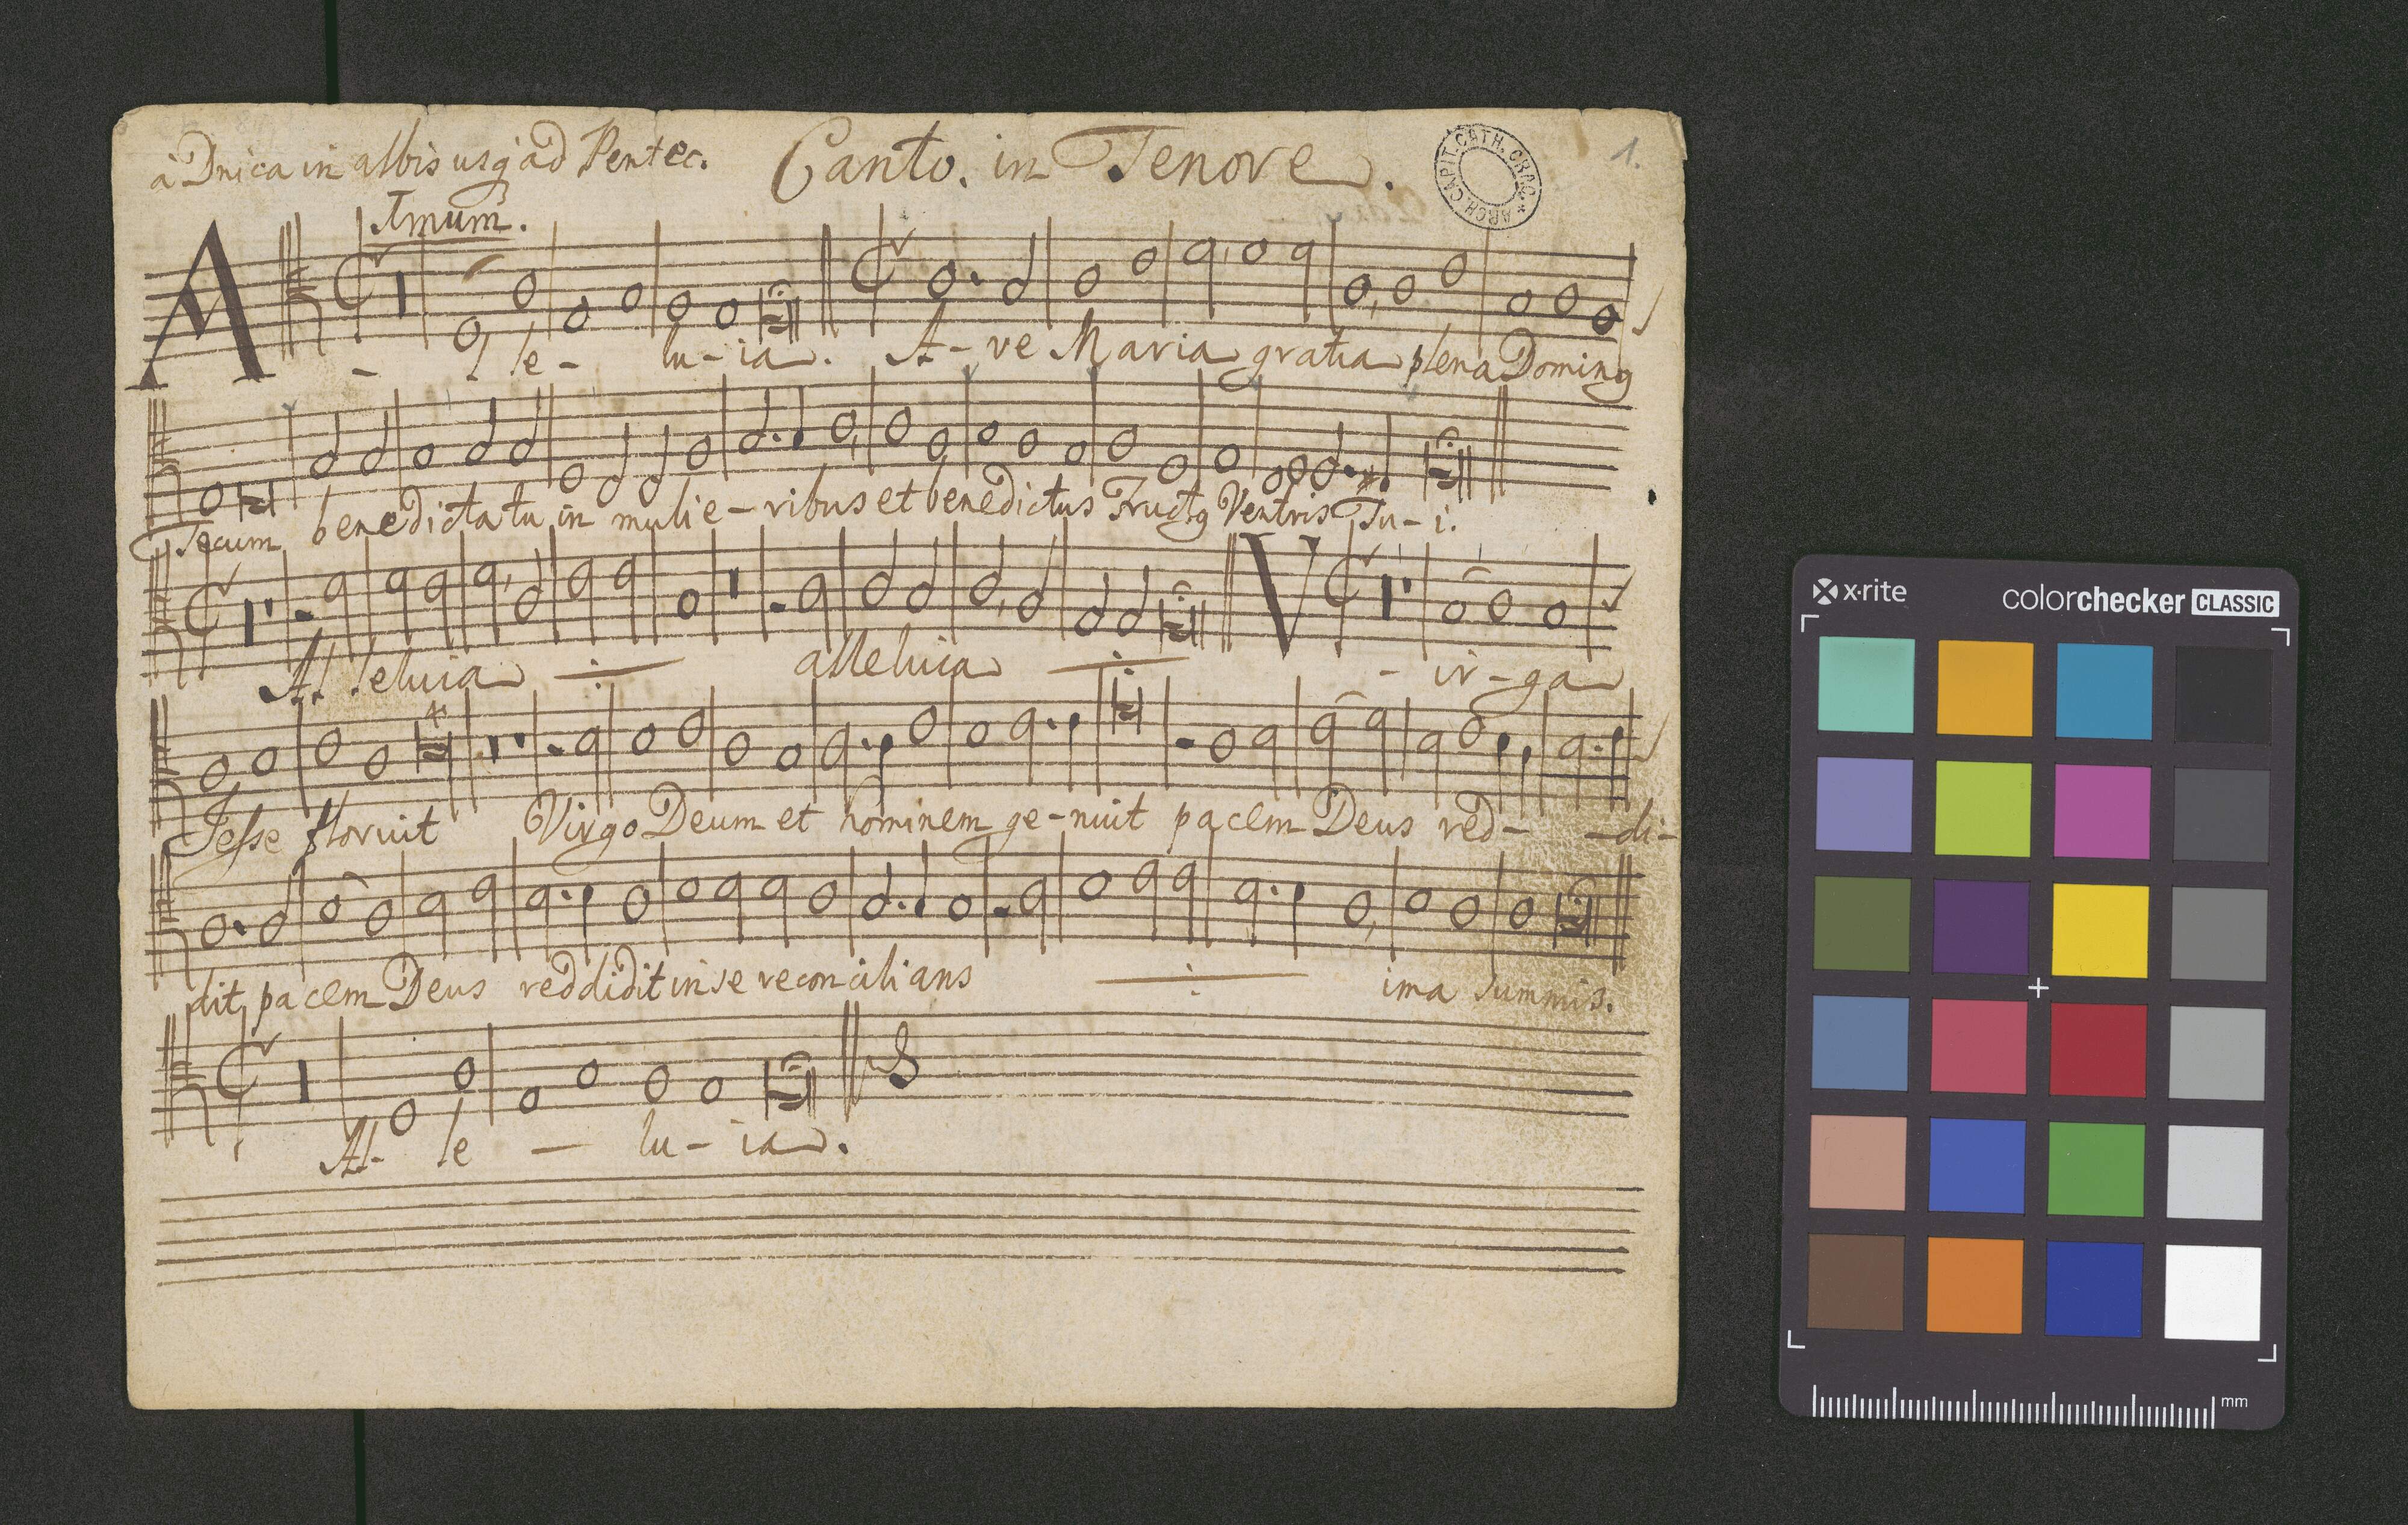 à Dnica in albis usq ad Pentec. Canto. in Tenore. 1.
ARCH. CAPIT. CATH. CRAC. *
Imum.
A - l le - lu - ia. A - ve Maria gratia plena Doming
Tecum benedicta tu in mulie - ribus et benedictus Fructg Ventris Tu - i.
Al leluia alleluia V - ir - ga
Jesse floruit Virgo Deum et hominem ge - nuit pacem Deus red - - di -
dit pacem Deus reddidit in se reconcilians ima summis.
Al - le - lu - ia.
x·rite colorchecker CLASSIC
mm